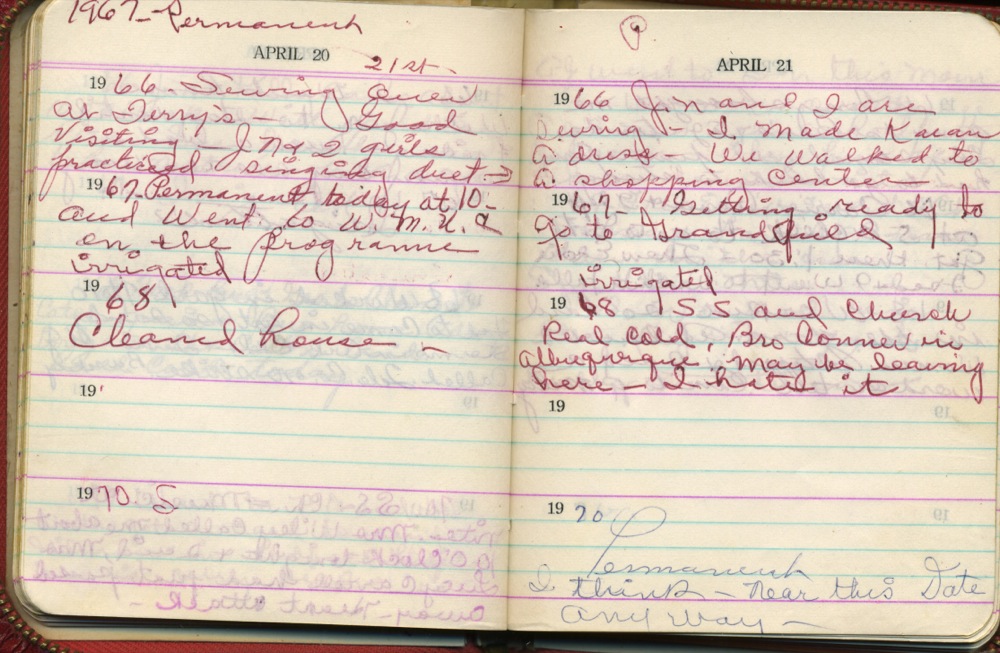 1967- Permanent
APRIL 20
21st-
1966- Sewing over
at Terry's - Good
Visiting - J N & 2 girls
practiced singing duet
1967- Permanent today at 10-
and Went to W.M.U. &
on the programe
irrigated
1968
Cleaned house -
19
1970 S
P
APRIL 21
1966 Jn and I are
Sewing - I made Karan
a dress - We walked to
a shopping center
1967- Getting ready to
go to
irrigated
1968 SS and Church
Real Cold, Bro Conner in
albuquerque. may be leaving
here - I hate it
19
1970
Permanent
I think - near this Date
any way -